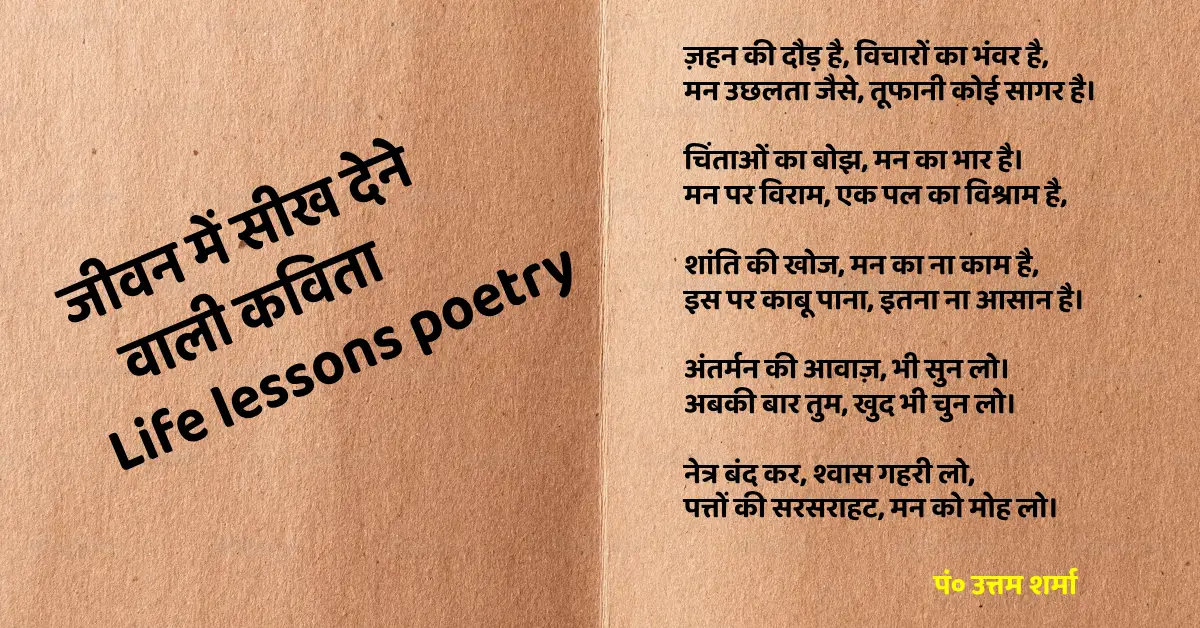 जीवन में सीख देने
वाली कविता
Life lessons poetry
ज़हन की दौड़ है, विचारों का भंवर है,
मन उछलता जैसे, तूफानी कोई सागर है।
चिंताओं का बोझ, मन का भार है।
मन पर विराम, एक पल का विश्राम है,
शांति की खोज, मन का ना काम है,
इस पर काबू पाना, इतना ना आसान है।
अंतर्मन की आवाज़, भी सुन लो।
अबकी बार तुम, खुद भी चुन लो।
नेत्र बंद कर, श्वास गहरी लो,
पत्तों की सरसराहट, मन को मोह लो।
पं० उत्तम शर्मा